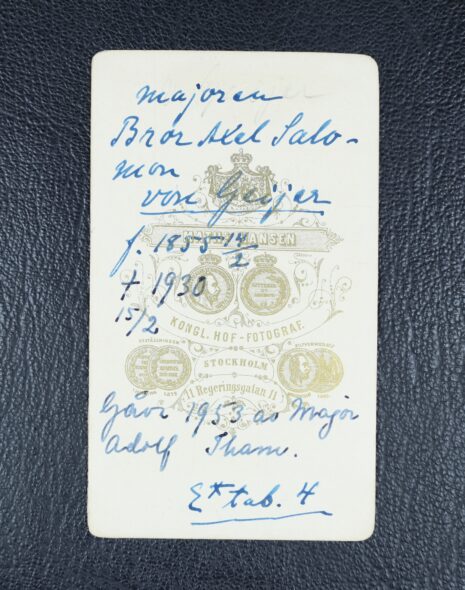 majoren
Bror Axel Salo-
mon
von Geijer
f. 1855 14/2
MATH. HANSEN
† 1930
15/2
KONGL. HOF-FOTOGRAF.
STOCKHOLM
11 Regeringsgatan 11
Gåva 1953 av Major
Adolf Tham.
tab. 4